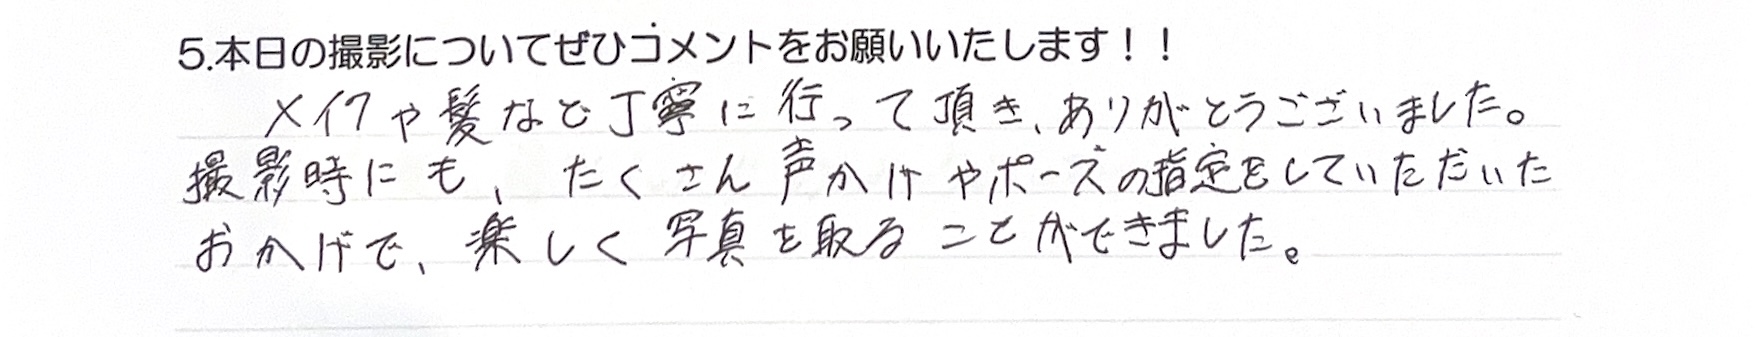 5.本日の撮影についてぜひコメントをお願いいたします！！
メイクや髪など丁寧に行って頂き、ありがとうございました。
撮影時にも、たくさん声かけやポーズの指定をしていただいた
おかげで、楽しく写真を取ることができました。